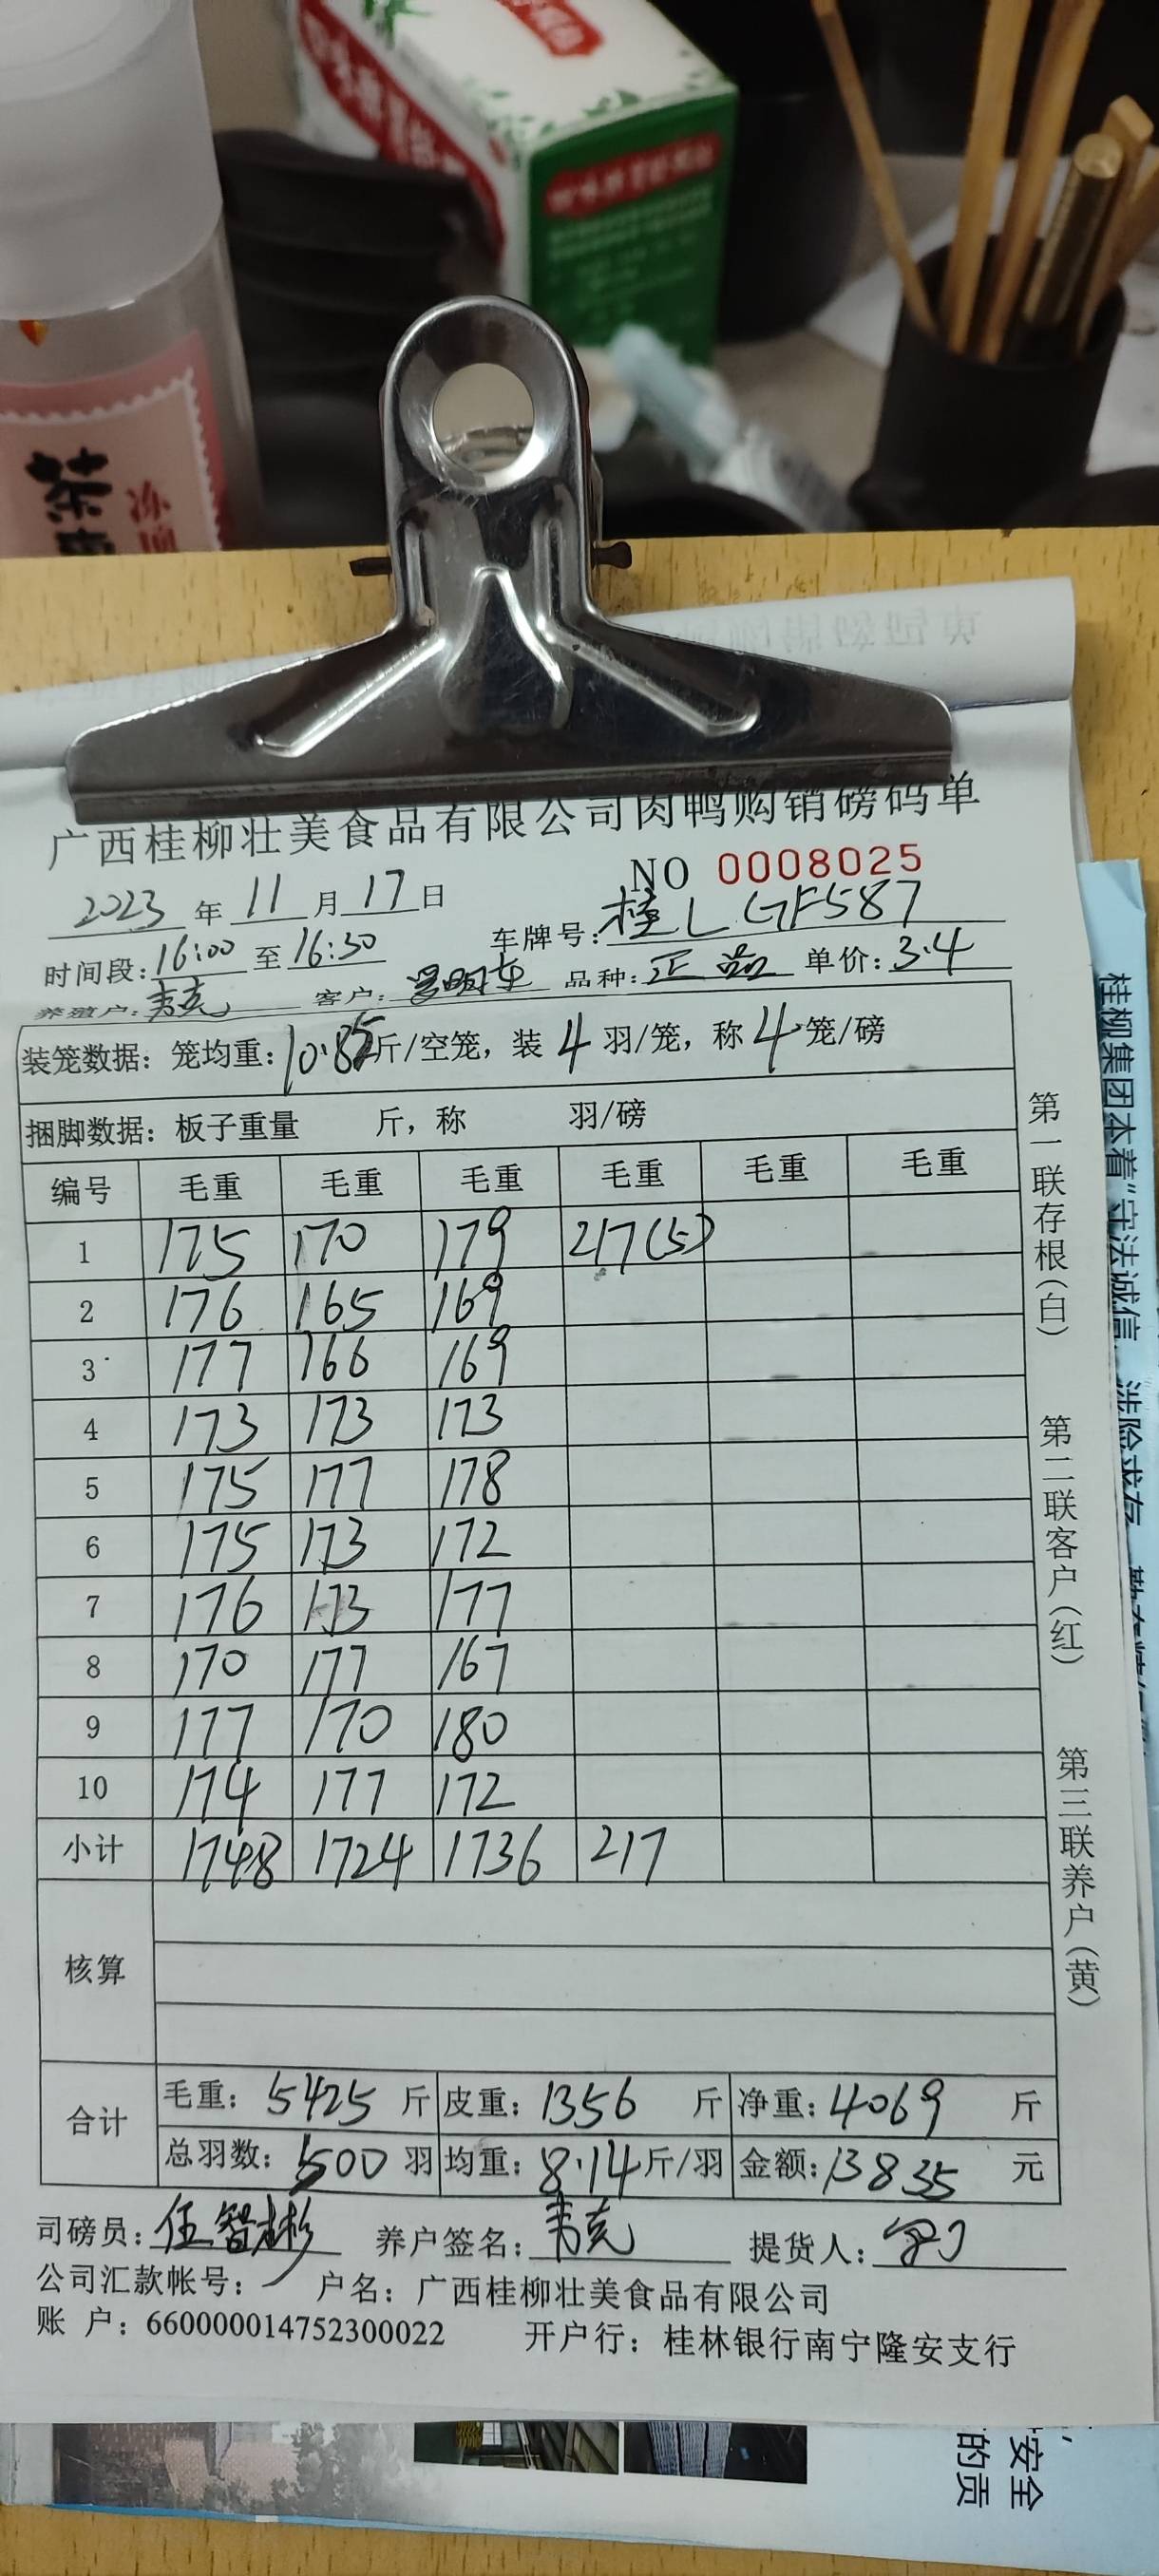 茶
冻
广西桂柳壮美食品有限公司肉鸭购销磅码单
NO 0008025
2023 年 11 月 17 日
车牌号: 桂L GF587
时间段: 16:00 至 16:30
养殖户: 韦克 客户: 品种: 正品 单价: 3.4
装笼数据: 笼均重: 10.85 斤/空笼, 装 4 羽/笼, 称 4 笼/磅
捆脚数据: 板子重量 斤, 称 羽/磅
编号 毛重 毛重 毛重 毛重 毛重 毛重
1 175 170 179 217(5)
2 176 165 169
3 177 166 169
4 173 173 173
5 175 177 178
6 175 173 172
7 176 173 177
8 170 177 167
9 177 170 180
10 174 177 172
小计 1748 1724 1736 217
核算
合计
毛重: 5425 斤 皮重: 1356 斤 净重: 4069 斤
总羽数: 500 羽 均重: 8.14 斤/羽 金额: 13835 元
司磅员: 伍智彬 养户签名: 韦克 提货人:
公司汇款帐号: 户名: 广西桂柳壮美食品有限公司
账 户: 660000014752300022 开户行: 桂林银行南宁隆安支行
第一联存根(白)
第二联客户(红)
第三联养户(黄)
桂柳集团本着“守法诚信
安全
的贡